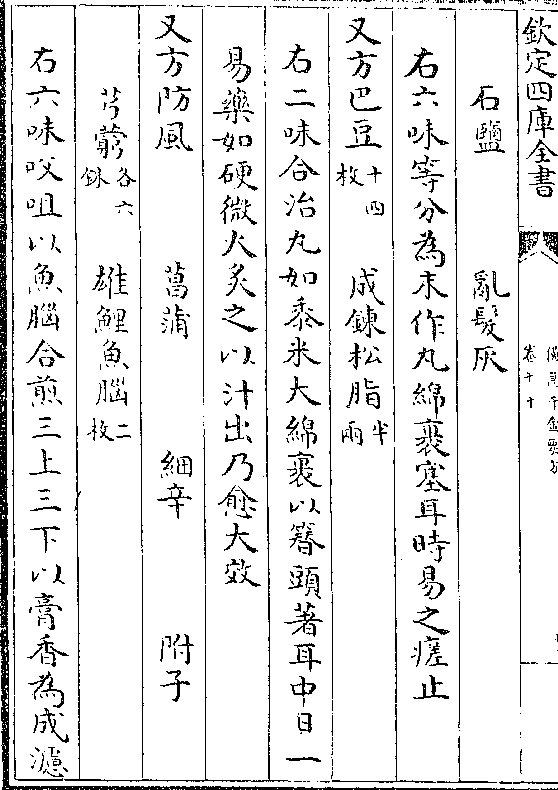 欽定四庫全書
卷二十
石鹽　亂髮灰
右六味等分為末作丸綿裹塞耳時易之瘥止
又方巴豆十四枚　成鍊松脂半兩
右二味合治丸如黍米大綿裹以簪頭著耳中日一
易藥如硬微火炙之以汁出乃愈大效
又方防風　菖蒲　細辛　附子
芎藭各六銖　雄鯉魚腦二枚
右六味㕮咀以魚腦合煎三上三下以膏香為成濾